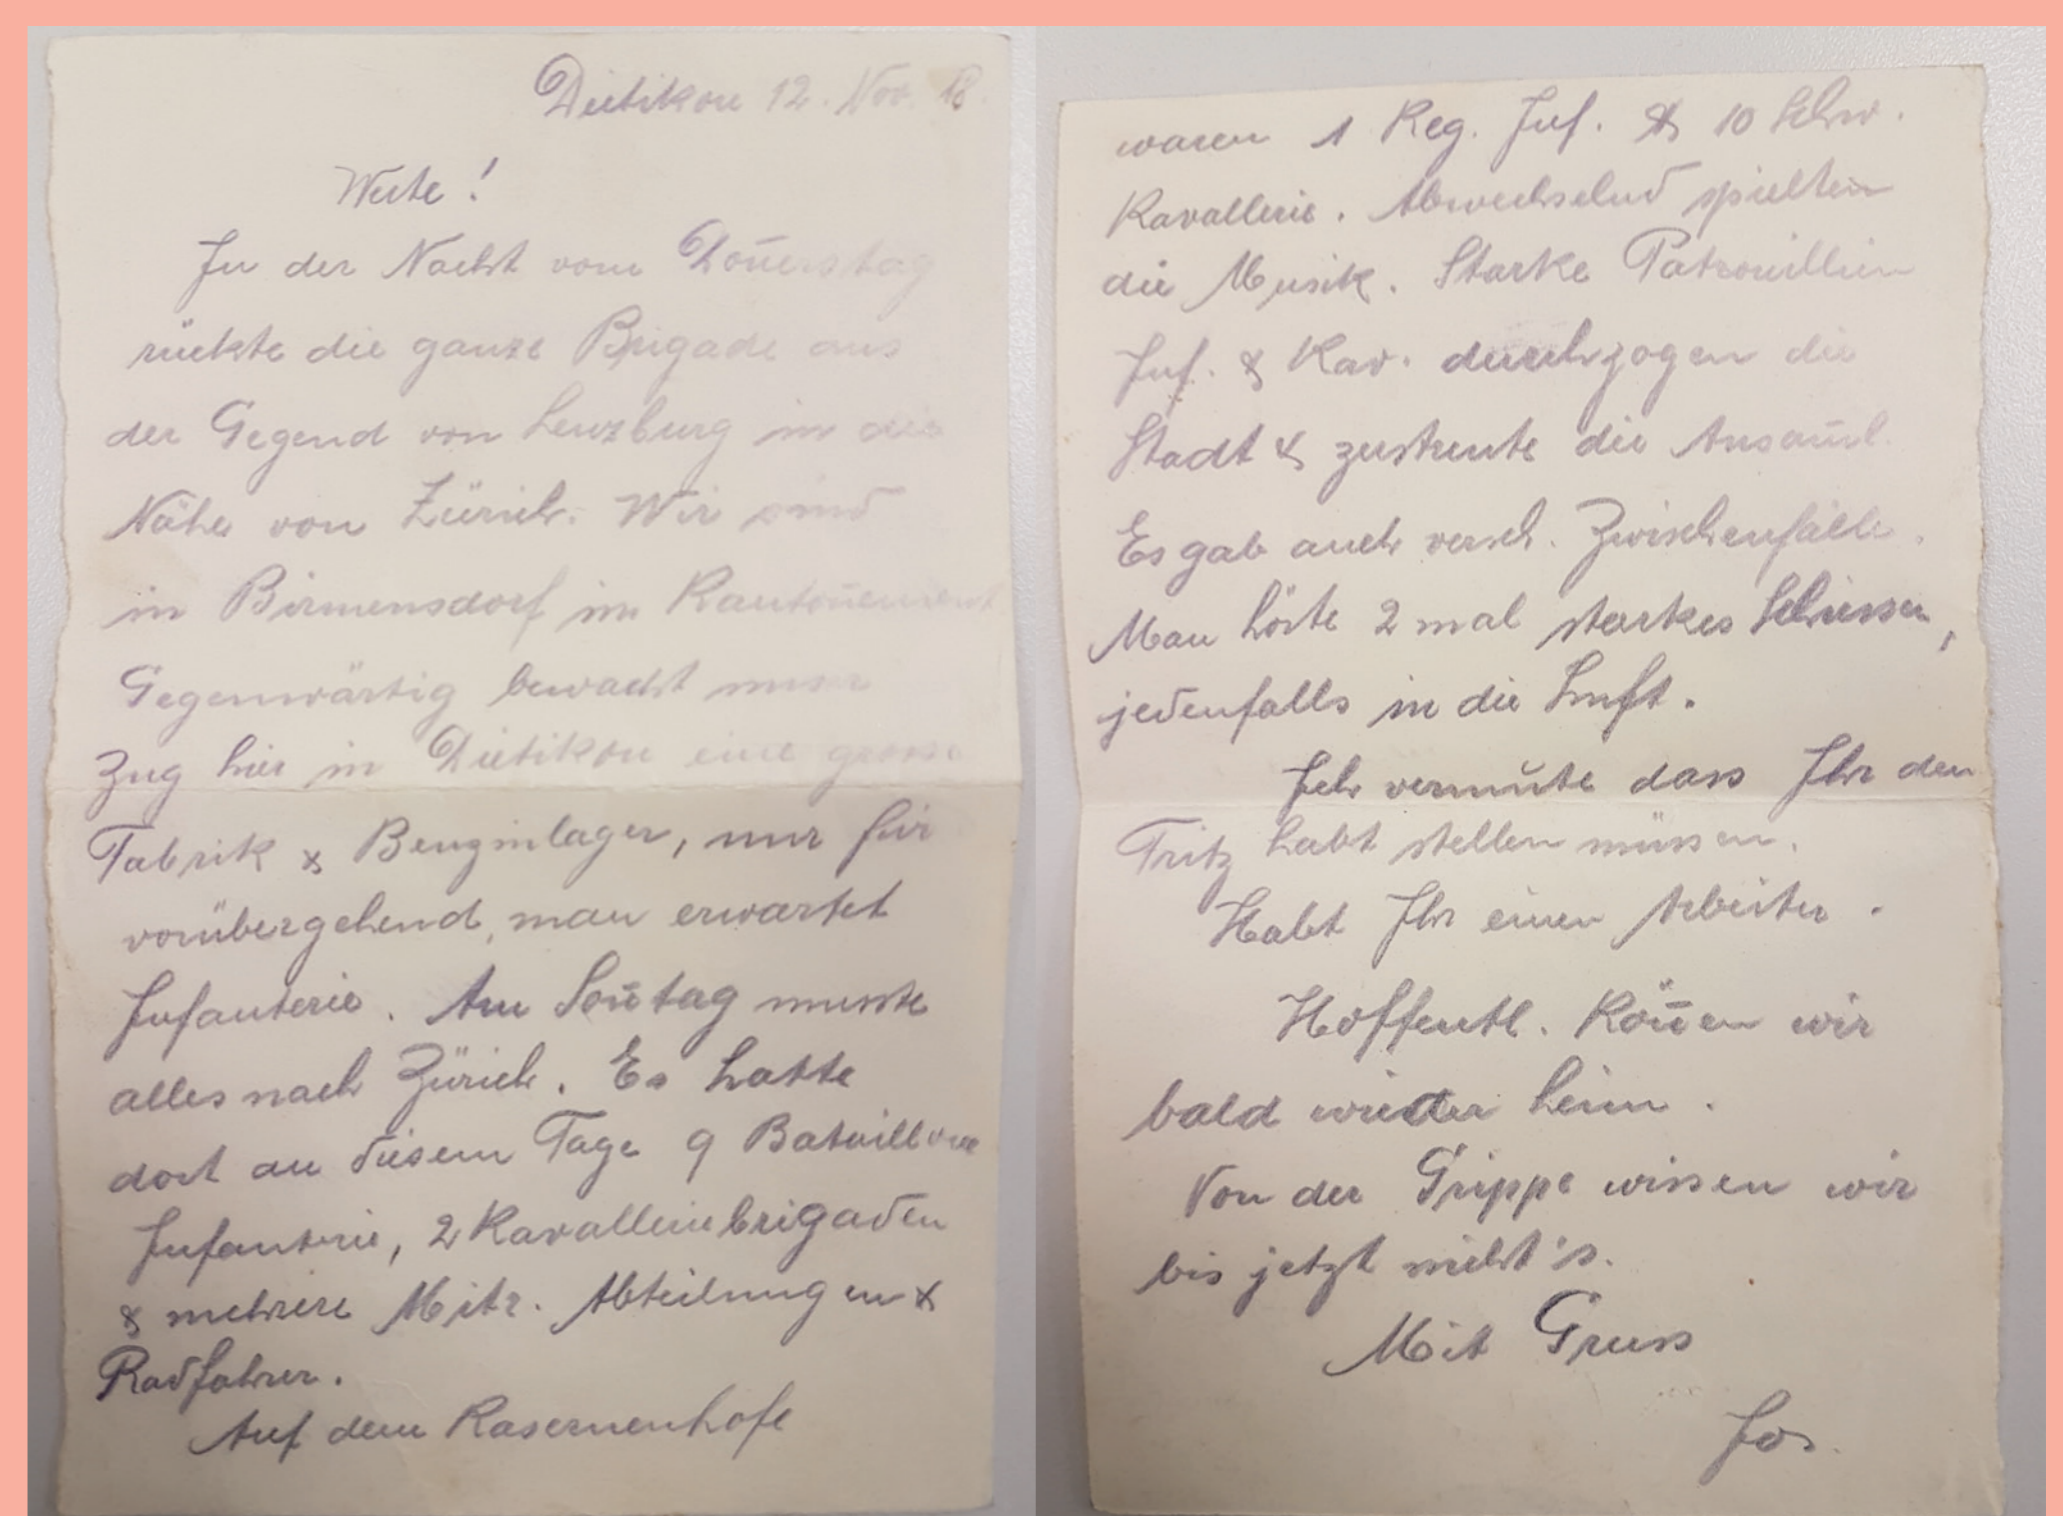 Dietikon 12. Nov. 18.
Werte!
In der Nacht vom Doñerstag
rückte die ganze Brigade aus
der Gegend von Lenzburg in die
Nähe von Zürich. Wir sind
in Birmensdorf im Kantoñement
Gegenwärtig bewacht unser
Zug hier in Dietikon eine grosse
Fabrik & Benzinlager, nur für
vorübergehend, man erwartet
Infanterie. Am Soñtag musste
alles nach Zürich. Es hatte
dort an diesem Tage 9 Bataillone
Infanterie, 2 Kavalleriebrigaden
& mehrere Mitr. Abteilungen &
Radfahrer.
Auf dem Kasernenhofe
waren 1 Reg. Inf. & 10 Schw.
Kavallerie. Abwechselnd spielten
die Musik. Starke Patrouillien
Inf. & Kav. durchzogen die
Stadt & zerstreute die Ansam̄l.
Es gab auch versch. Zwischenfälle.
Man hörte 2 mal starkes Schiessen,
jedenfalls in die Luft.
Ich vermute dass Ihr den
Fritz habt stellen müssen.
Habt Ihr einen Arbeiter.
Hoffentl. Köñen wir
bald wieder heim.
Von der Grippe wissen wir
bis jetzt nicht's.
Mit Gruss
Jos.